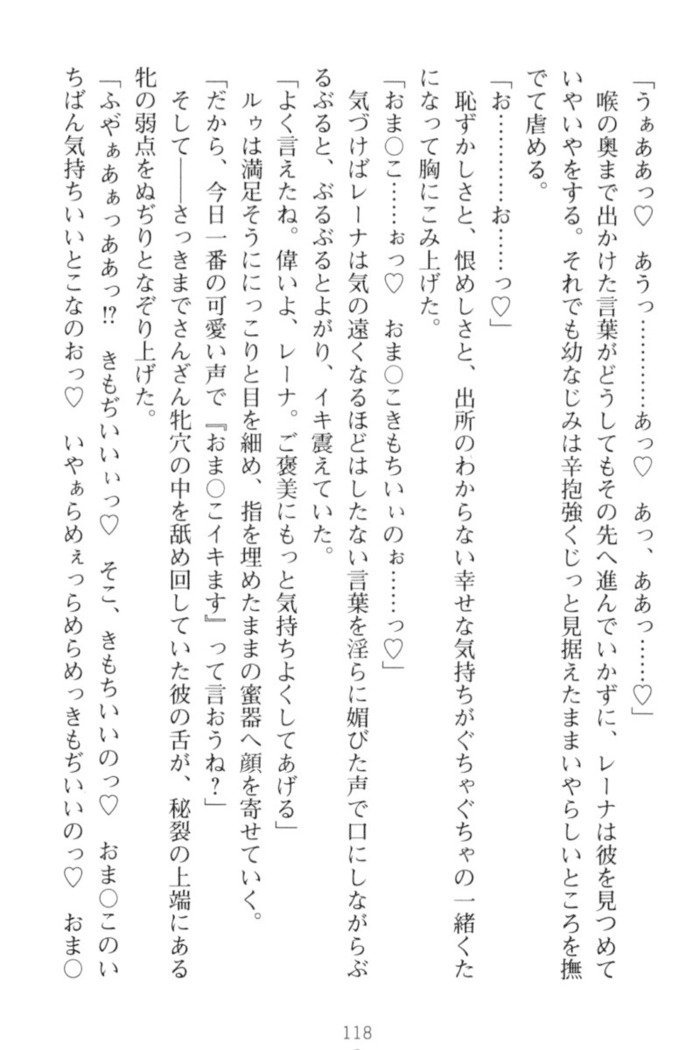 「うぁああっ♡　あうっ…………あっ♡　あっ、ああっ……♡」
　喉の奥まで出かけた言葉がどうしてもその先へ進んでいかずに、レーナは彼を見つめて
いやいやをする。それでも幼なじみは辛抱強くじっと見据えたままいやらしいところを撫
でて虐める。
「お…………お……っ♡」
　恥ずかしさと、恨めしさと、出所のわからない幸せな気持ちがぐちゃぐちゃの一緒くた
になって胸にこみ上げた。
「おま〇こ……ぉっ♡　おま〇こきもちいぃのぉ……っ♡」
　気づけばレーナは気の遠くなるほどはしたない言葉を淫らに媚びた声で口にしながらぶ
るぶると、ぶるぶるとよがり、イキ震えていた。
「よく言えたね。偉いよ、レーナ。ご褒美にもっと気持ちよくしてあげる」
　ルゥは満足そうににっこりと目を細め、指を埋めたままの蜜器へ顔を寄せていく。
「だから、今日一番の可愛い声で『おま〇こイキます』って言おうね？」
　そして――さっきまでさんざん牝穴の中を舐め回していた彼の舌が、秘裂の上端にある
牝の弱点をぬぢりとなぞり上げた。
「ふやぁあぁっああっ!?　きもぢいいぃっ♡　そこ、きもちいいのっ♡　おま〇このい
ちばん気持ちいいとこなのおっ♡　いやぁらめぇっらめらめっきもぢいいのっ♡　おま〇
118